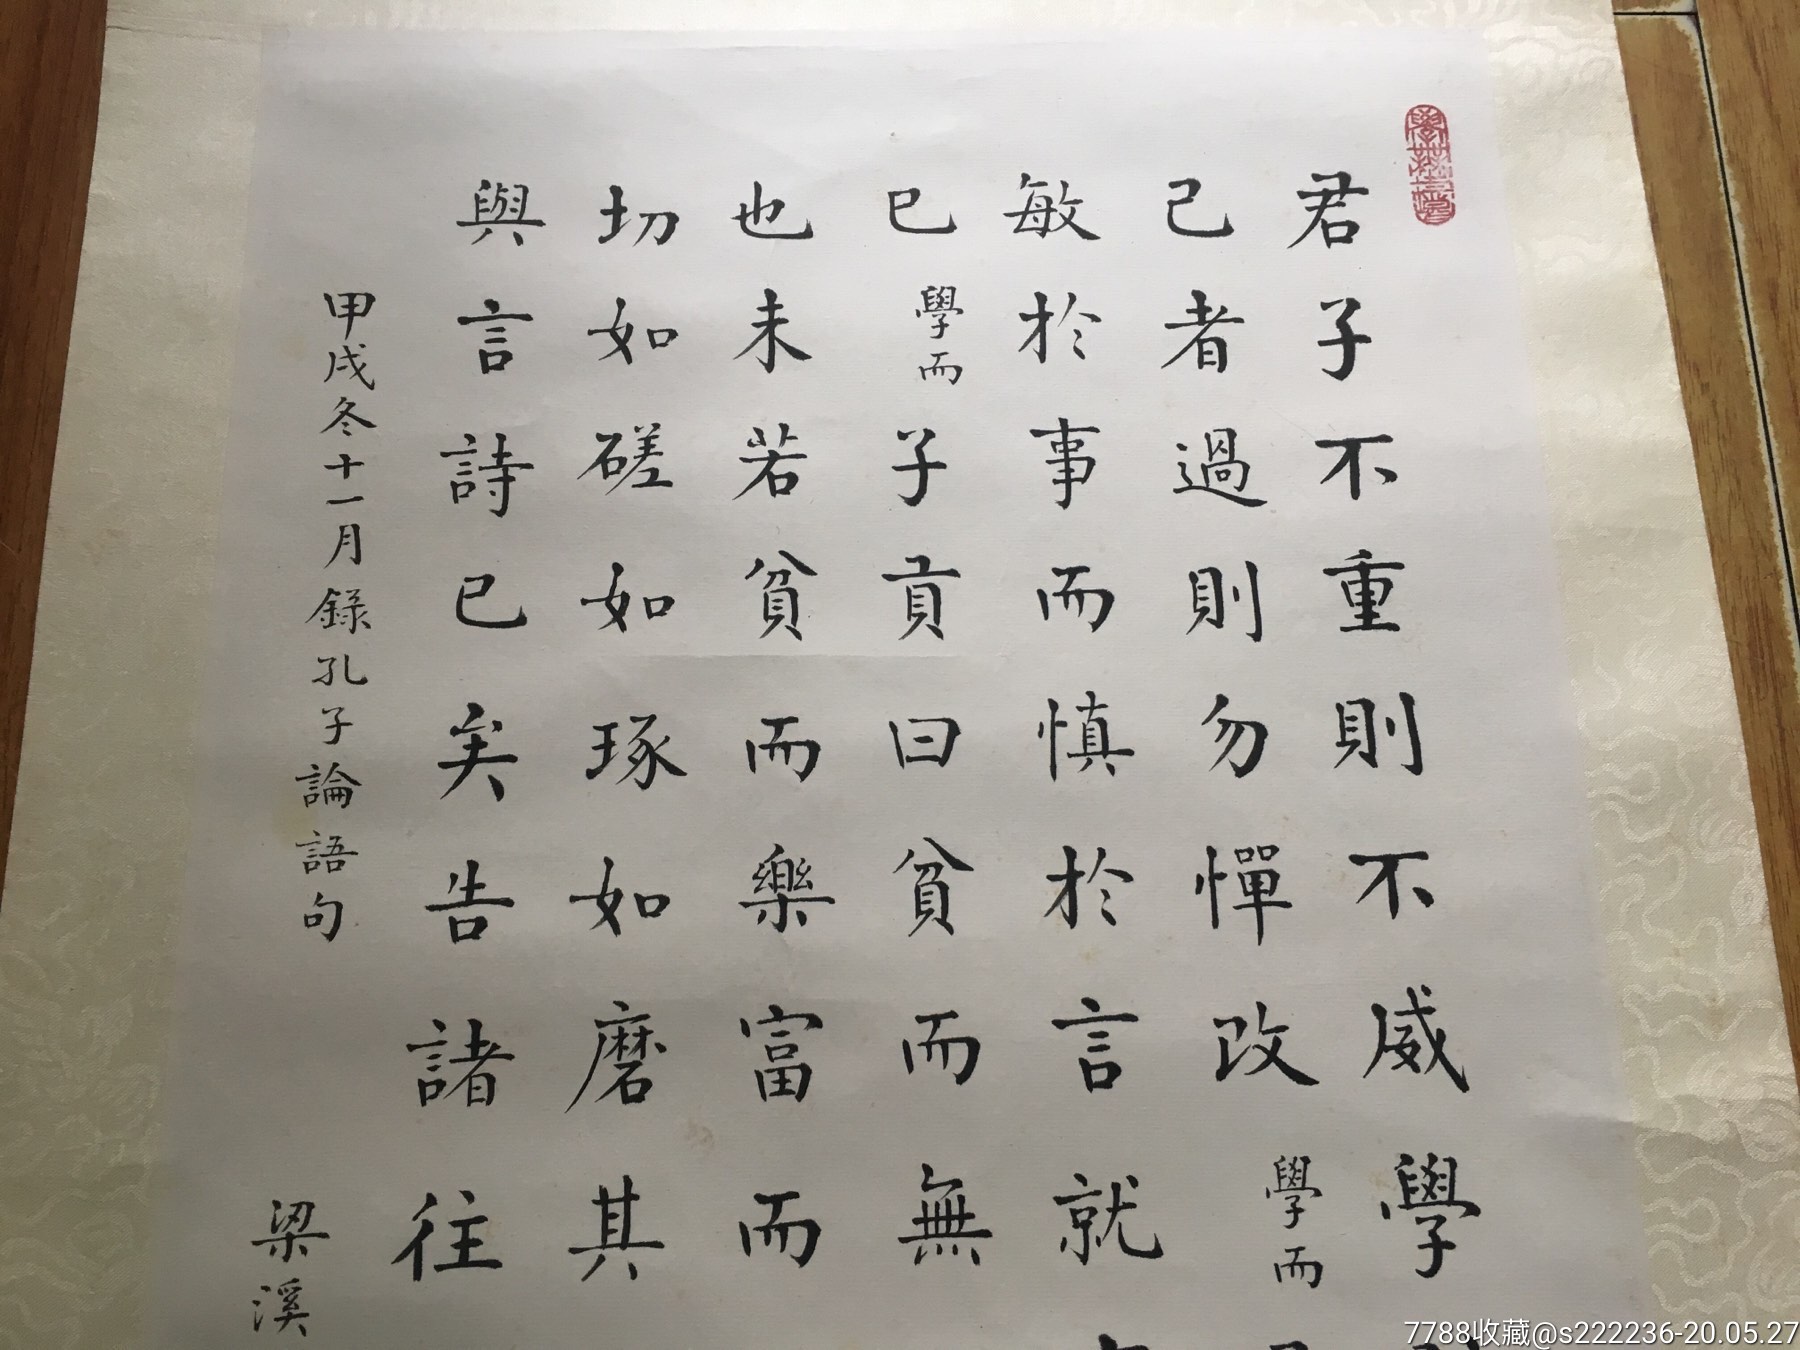 君子不重則不威學
己者過則勿憚改學而
敏於事而慎於言就
已學而子貢曰貧而無
也未若貧而樂富而
切如磋如琢如磨其
與言詩已矣告諸往
甲戌冬十一月錄孔子論語句
梁溪
7788收藏@s222236-20.05.27